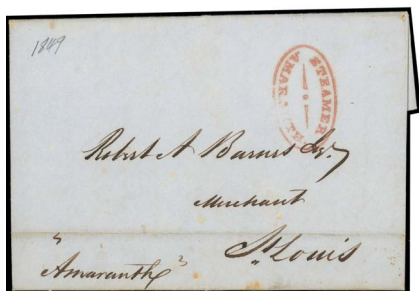 1849
STEAMER
AMAR
Robert A Barnes Esqr.
Merchant
St Louis
"Amaranth"